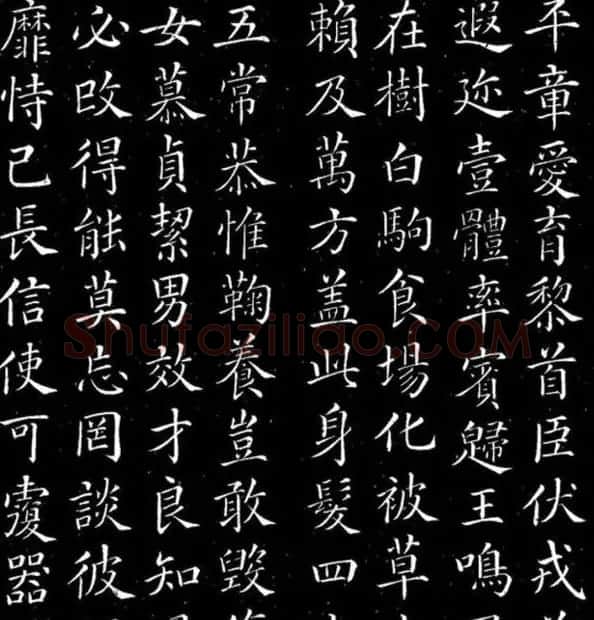 平章愛育黎首臣伏戎
遐迩壹體率賓歸王鳴
在樹白駒食場化被草
賴及萬方盖此身髮四
五常恭惟鞠養豈敢毀
女慕貞絜男效才良知
必改得能莫忘罔談彼
靡恃己長信使可覆器
Shufaziliao.COM